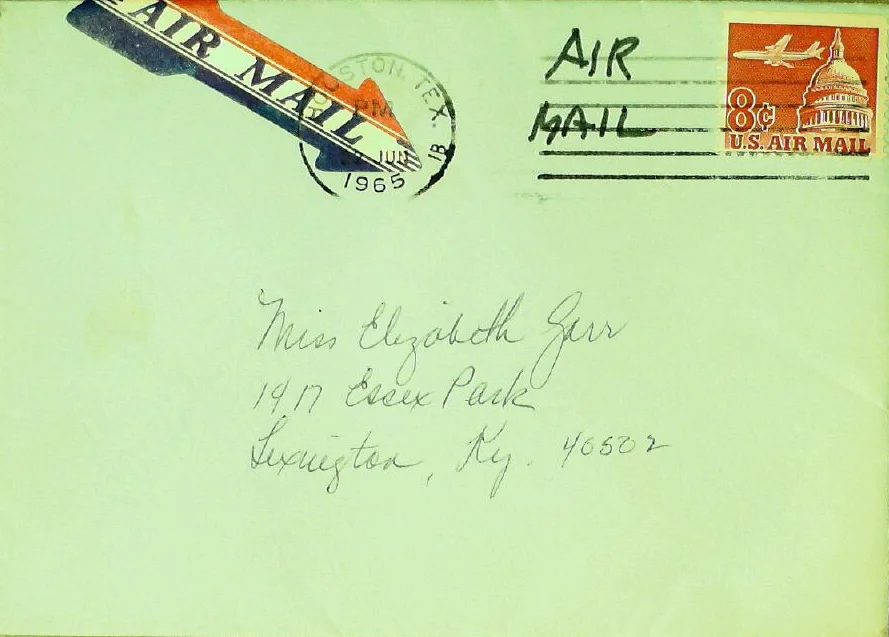 AIR MAIL
HOUSTON, TEX.
PM
JUN
1965
18
AIR
MAIL
8¢
U.S. AIR MAIL
Miss Elizabeth Garr
1917 Essex Park
Lexington, Ky. 40502